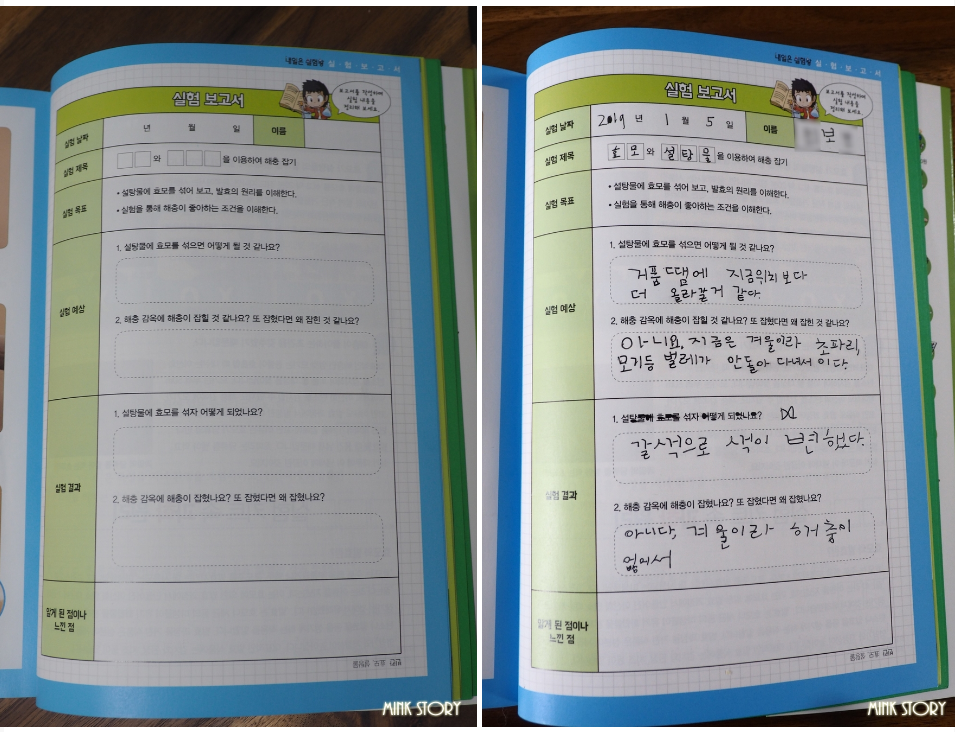 내일은 실험왕 실·험·보·고·서
실험 보고서
보고서를 작성하며
실험 내용을
정리해 보세요.
실험 날짜
년 월 일
이름
실험 제목
와 을 이용하여 해충 잡기
실험 목표
• 설탕물에 효모를 섞어 보고, 발효의 원리를 이해한다.
• 실험을 통해 해충이 좋아하는 조건을 이해한다.
실험 예상
1. 설탕물에 효모를 섞으면 어떻게 될 것 같나요?
2. 해충 감옥에 해충이 잡힐 것 같나요? 또 잡혔다면 왜 잡힌 것 같나요?
실험 결과
1. 설탕물에 효모를 섞자 어떻게 되었나요?
2. 해충 감옥에 해충이 잡혔나요? 또 잡혔다면 왜 잡혔나요?
알게 된 점이나
느낀 점
정답: 효모, 설탕물
MINK STORY
내일은 실험왕 실·험·보·고·서
실험 보고서
보고서를 작성하며
실험 내용을
정리해 보세요.
실험 날짜
2019 년 1 월 5 일
이름
보
실험 제목
효모 와 설탕물 을 이용하여 해충 잡기
실험 목표
• 설탕물에 효모를 섞어 보고, 발효의 원리를 이해한다.
• 실험을 통해 해충이 좋아하는 조건을 이해한다.
실험 예상
1. 설탕물에 효모를 섞으면 어떻게 될 것 같나요?
거품 땜에 지금위치보다
더 올라갈거 같다.
2. 해충 감옥에 해충이 잡힐 것 같나요? 또 잡혔다면 왜 잡힌 것 같나요?
아니요, 지금은 겨울이라 초파리,
모기등 벌레가 안돌아 다녀서 이다.
실험 결과
1. 설탕물에 효모를 섞자 어떻게 되었나요?
갈색으로 색이 변했다.
2. 해충 감옥에 해충이 잡혔나요? 또 잡혔다면 왜 잡혔나요?
아니다, 겨울이라 해충이
없어서
알게 된 점이나
느낀 점
정답: 효모, 설탕물
MINK STORY